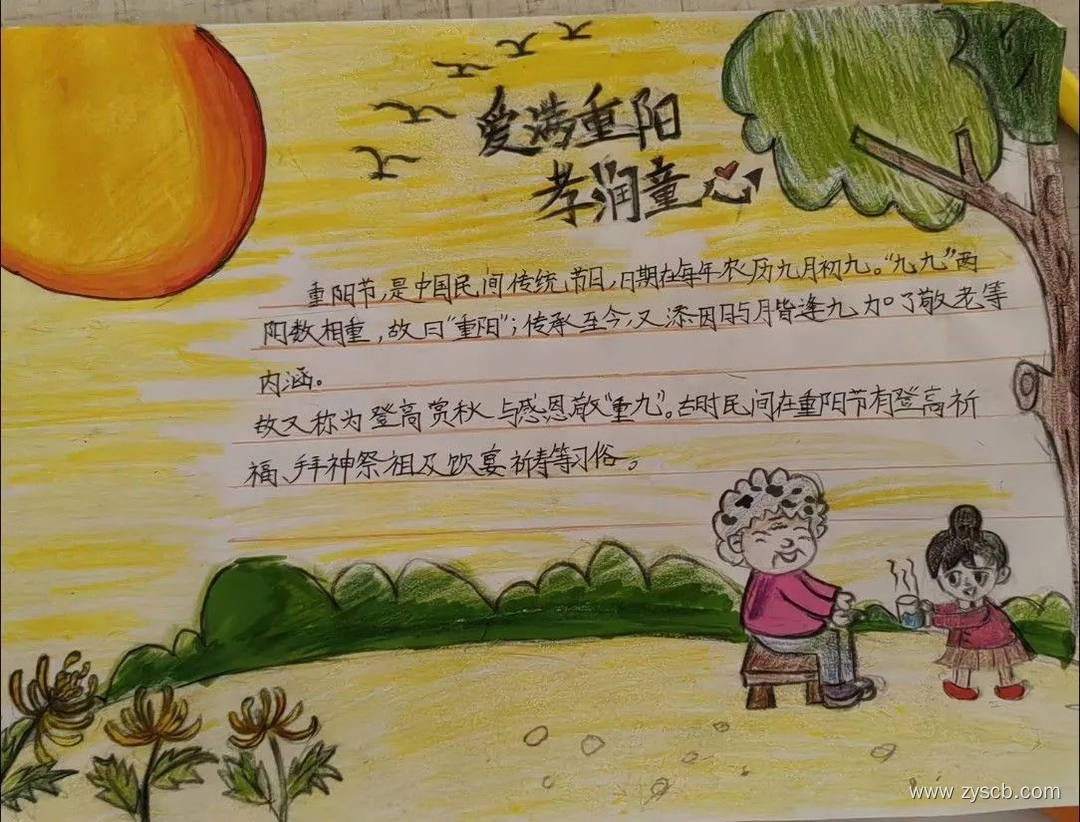 爱满重阳
孝润童心
重阳节,是中国民间传统节日,日期在每年农历九月初九。“九九”两
阳数相重,故曰“重阳”;传承至今,又添因日与月皆逢九,加了敬老等
内涵。
故又称为登高赏秋与感恩敬“重九”。古时民间在重阳节有登高祈
福、拜神祭祖及饮宴祈寿等习俗。
www.zyscb.com